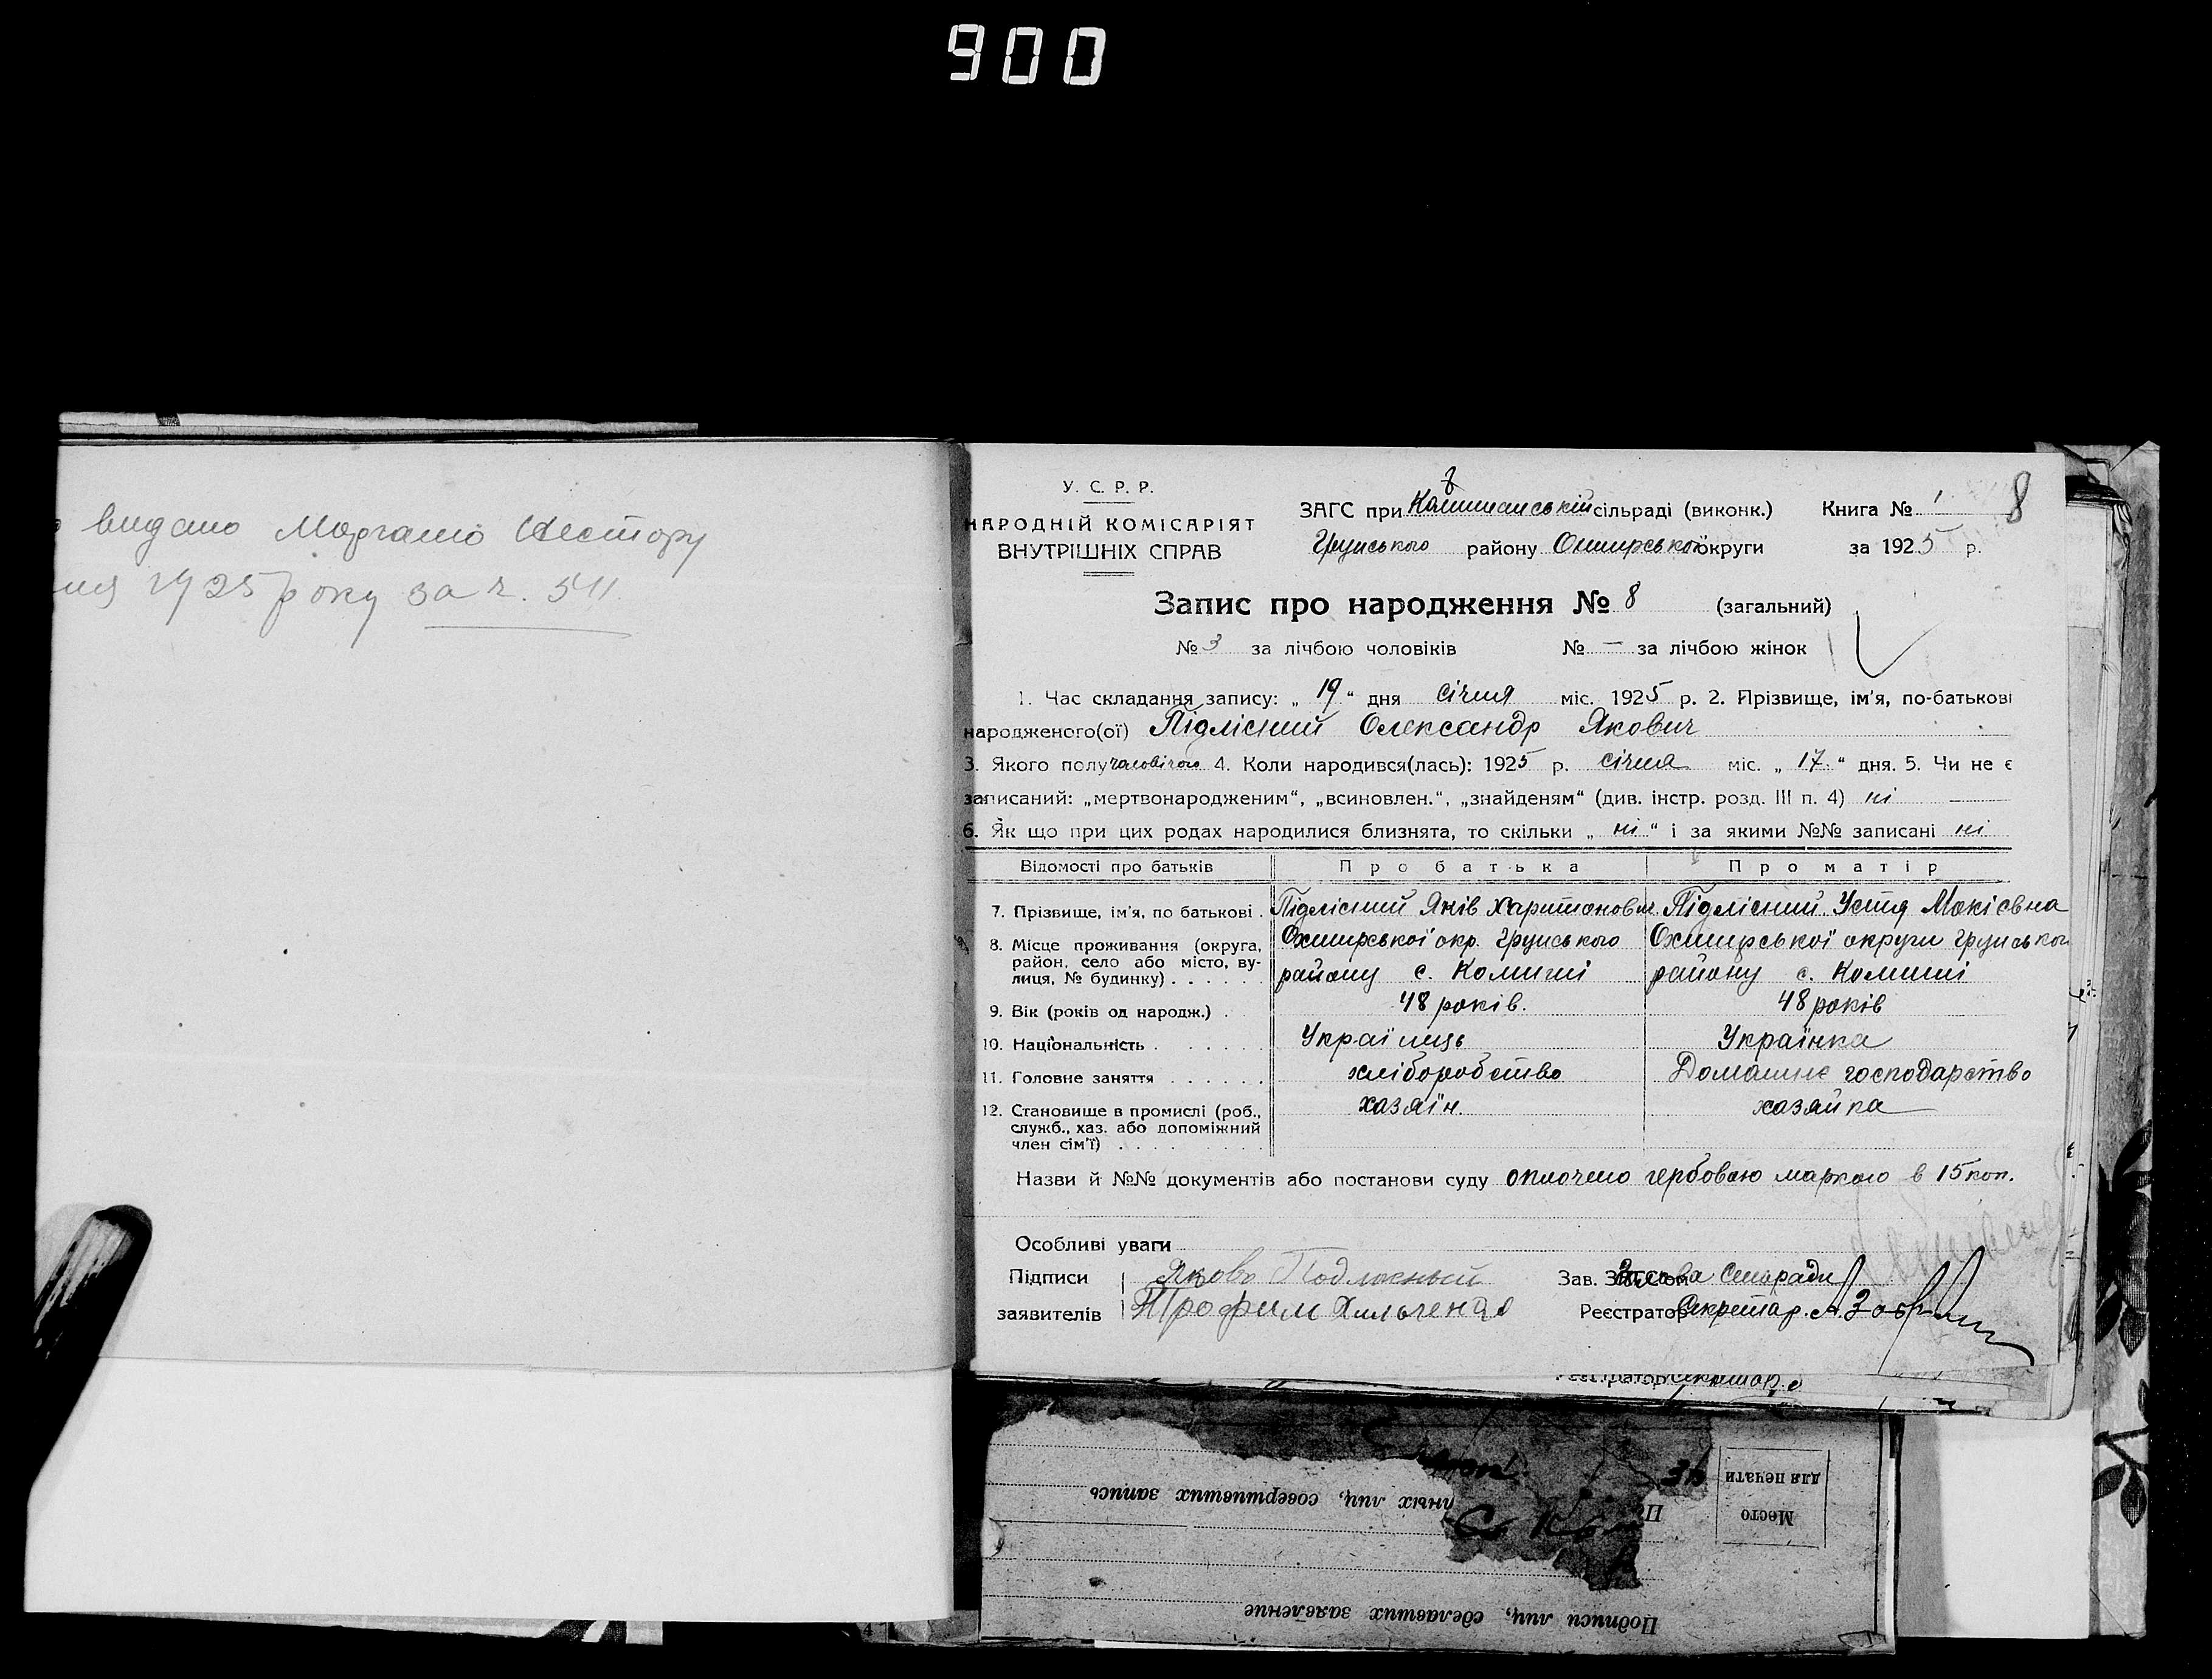 900
видано Маргамо Нестору
1925 року за ч. 511.
У. С. Р. Р.
НАРОДНІЙ КОМІСАРІЯТ
ВНУТРІШНІХ СПРАВ
ЗАГС при Камишанській сільраді (виконк.)
Грунського району Охтирської округи
Книга № 1
8
за 1925 р.
Запис про народження № 8 (загальний)
№ 3 за лічбою чоловіків № — за лічбою жінок
1. Час складання запису: „ 19 “ дня січня міс. 1925 р. 2. Прізвище, ім'я, по-батькові
народженого(ої) Підлісний Олександр Якович
3. Якого полу чоловічого 4. Коли народився(лась): 1925 р. січня міс. „ 17 “ дня. 5. Чи не є
записаний: „мертвонародженим“, „всиновлен.“, „знайденям“ (див. інстр. розд. III п. 4) ні
6. Як що при цих родах народилися близнята, то скільки „ ні “ і за якими №№ записані ні
Відомості про батьків Про батька Про матір
7. Прізвище, ім'я, по батькові . Підлісний Яків Харитонович Підлісний Устя Мокієвна
8. Місце проживання (округа, район, село або місто, вулиця, № будинку) . . . . . .
Охтирської окр. Грунського
району с. Комиші
Охтирської округи Грунського
району с. Комиші
9. Вік (років од народж.) . 48 років. 48 років
10. Національність . . . . . . Українець Українка
11. Головне заняття . . . . . . хліборобство Домашнє господарство
12. Становище в промислі (роб., служб., хаз. або допоміжний член сім'ї) . . . . хазяїн. хазяйка
Назви й №№ документів або постанови суду оплочено гербовою маркою в 15 коп.
Особливі уваги
Підписи
заявителів
Яковъ Подлесный
Трофим Хильченко
Зав. ЗАГСом Голова Сільради
Реєстратор Секретар.
Реєстратор Секретар.
Место
для печати
лиц, совершивших запись
Подписи лиц, сделавших заявление